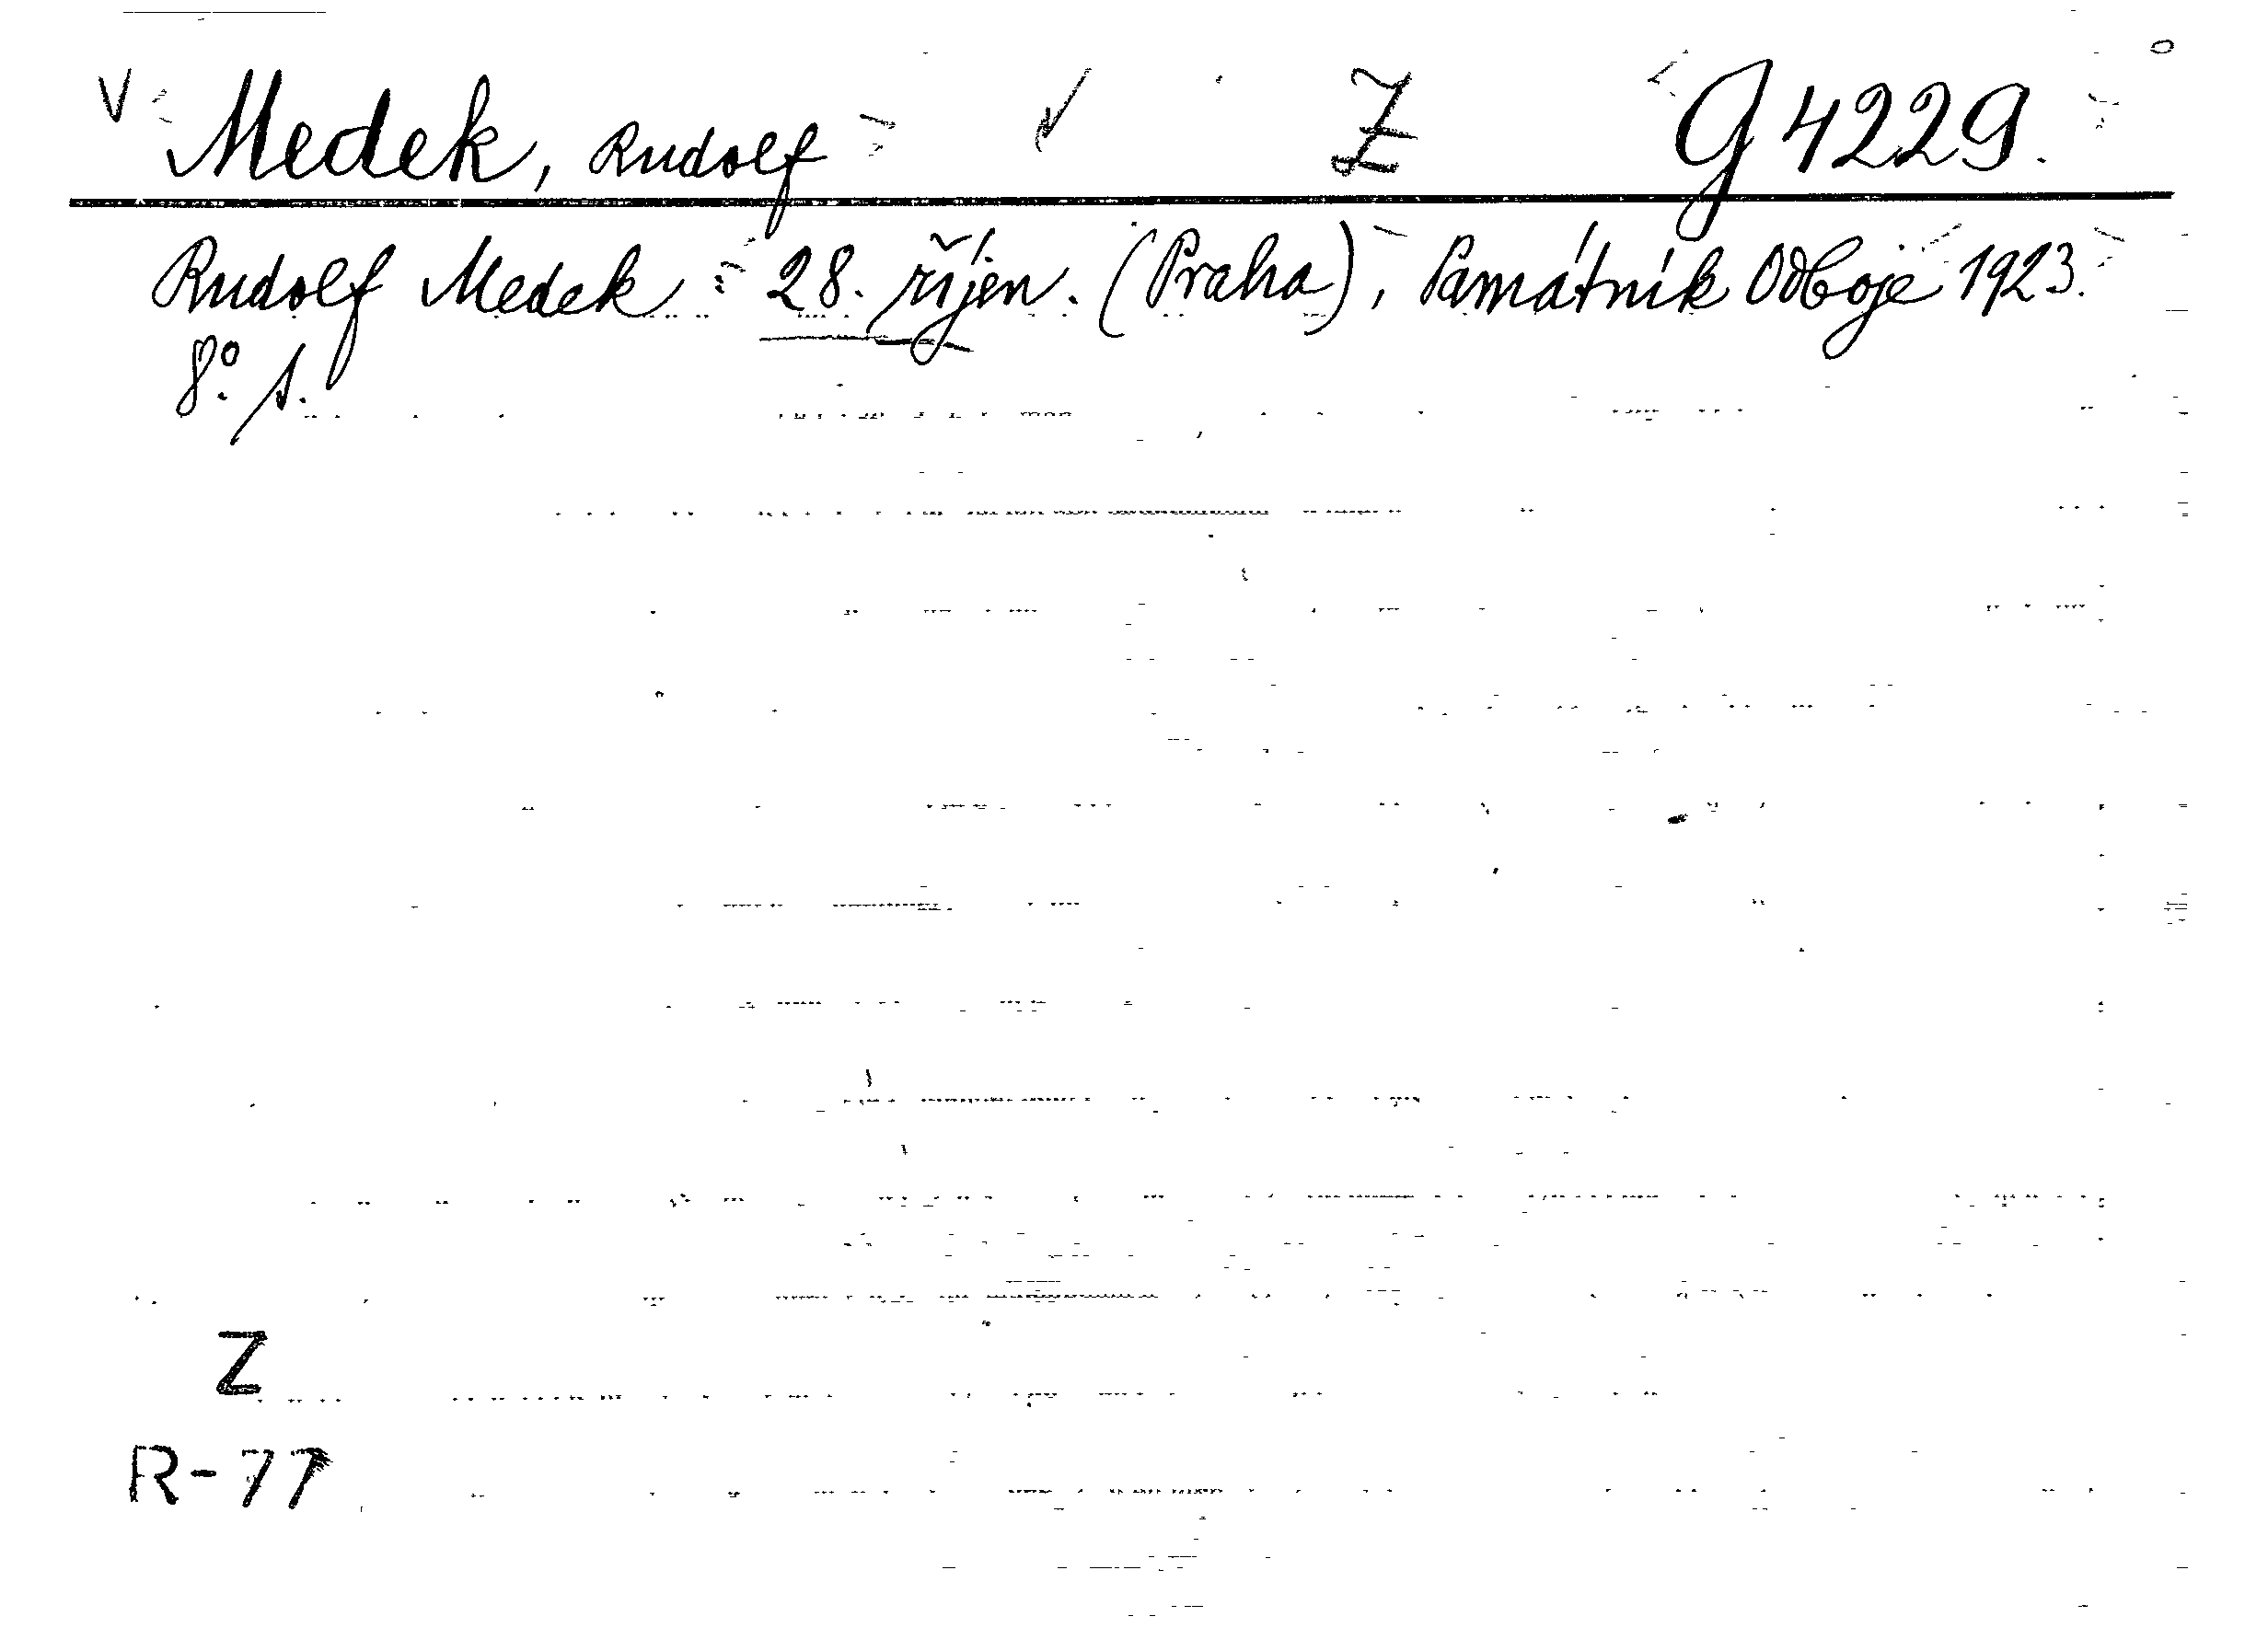 V Medek, Rudolf ✓ Z G 4229.
Rudolf Medek: 28. říjen. (Praha), Památník Odboje 1923.
8º. s.
Z
R-77